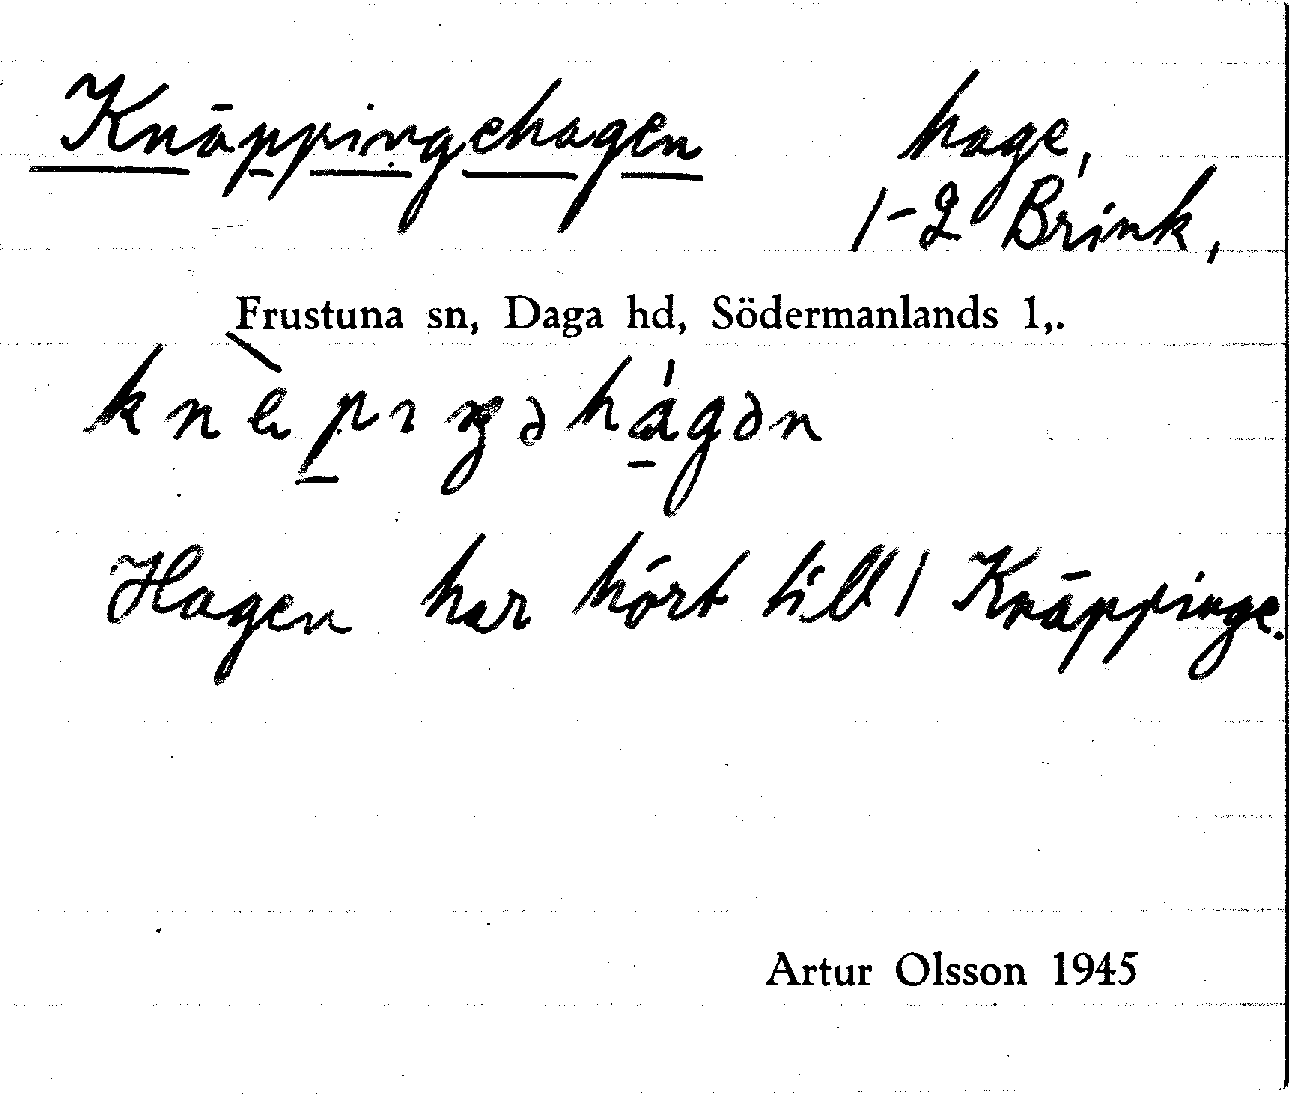 Knäppingehagen hage,
1-2 Brink,
Frustuna sn, Daga hd, Södermanlands l,.
knè̀pıŋəhágən
Hagen har hört till / Knäppinge.
Artur Olsson 1945